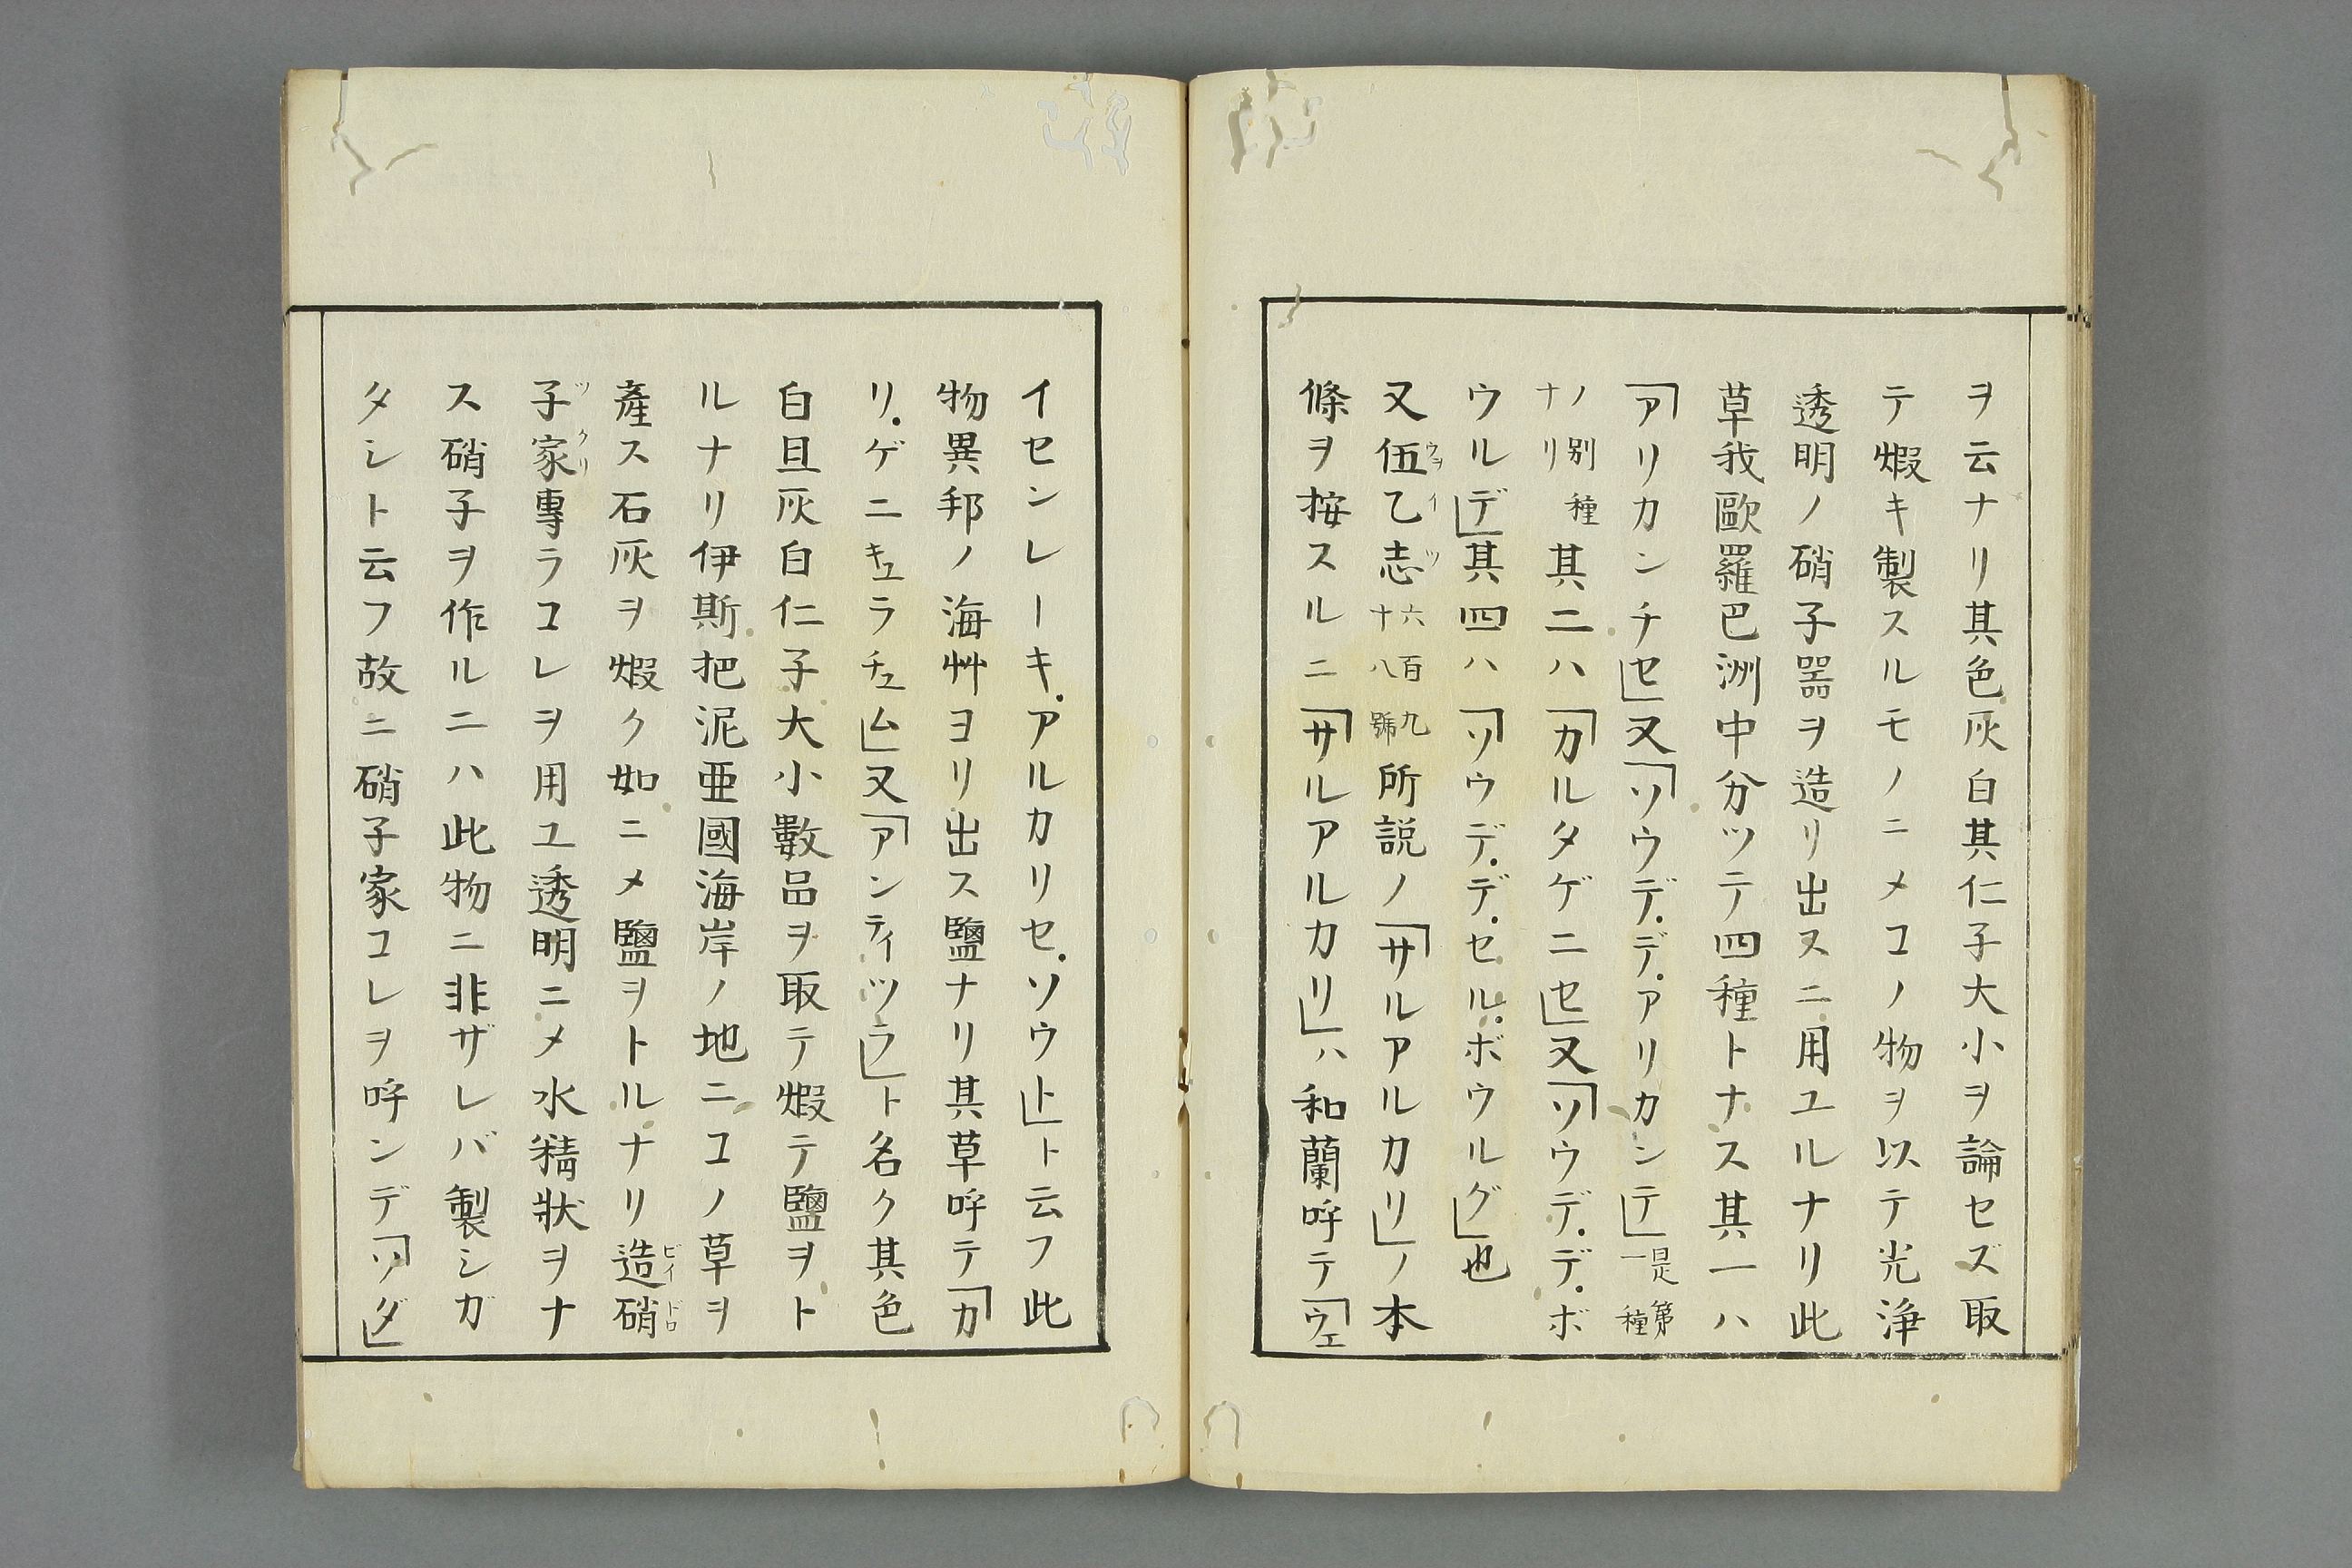 ヲ云ナリ其色灰白其仁子大小ヲ論セズ取
テ煆キ製スルモノニメコノ物ヲ以テ光浄
透明ノ硝子噐ヲ造リ出スニ用ユルナリ此
草我歐羅巴洲中分ツテ四種トナス其一ハ
「アリカンチセ」又「ソウデ.デ.アリカンテ」是第一種
ノ別種ナリ其二ハ「カルタゲニセ」又「ソウデ.デ.ボ
ウルデ」其四ハ「ソウデ.デ.セル.ボウルグ」也
又伍乙志ウヲイツ六百九十八號所説ノ「サルアルカリ」ノ本
條ヲ按スルニ「サルアルカリ」ハ和蘭呼テ「ウェ
イセンレーキ.アルカリセ.ソウト」ト云フ此
物異邦ノ海艸ヨリ出ス鹽ナリ其草呼テ「カ
リ.ゲニキュラチュム」又「アンティツラ」ト名ク其色
白且灰白仁子大小數品ヲ取テ煆テ鹽ヲト
ルナリ伊斯把泥亜國海岸ノ地ニコノ草ヲ
産ス石灰ヲ煆ク如ニメ鹽ヲトルナリ造硝ビイドロ
子家ツクリ專ラコレヲ用ユ透明ニメ水精狀ヲナ
ス硝子ヲ作ルニハ此物ニ非ザレバ製シガ
タシト云フ故ニ硝子家コレヲ呼ンデ「ソダ」